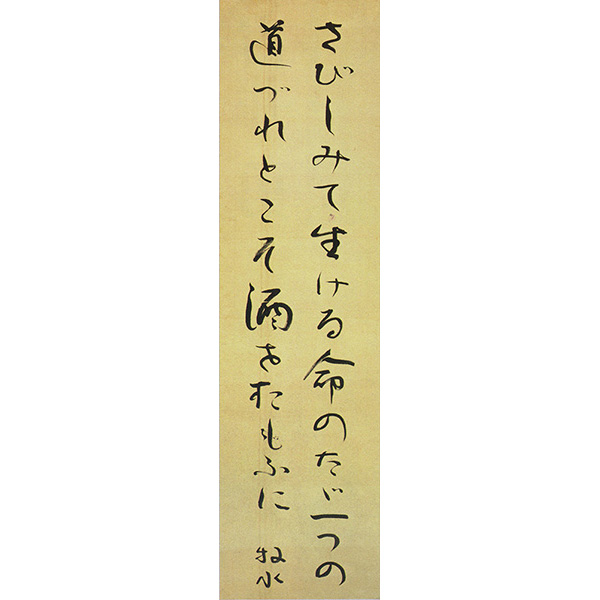 さびしみて生ける命のたゞ一つの
道づれとこそ酒をおもふに
牧水